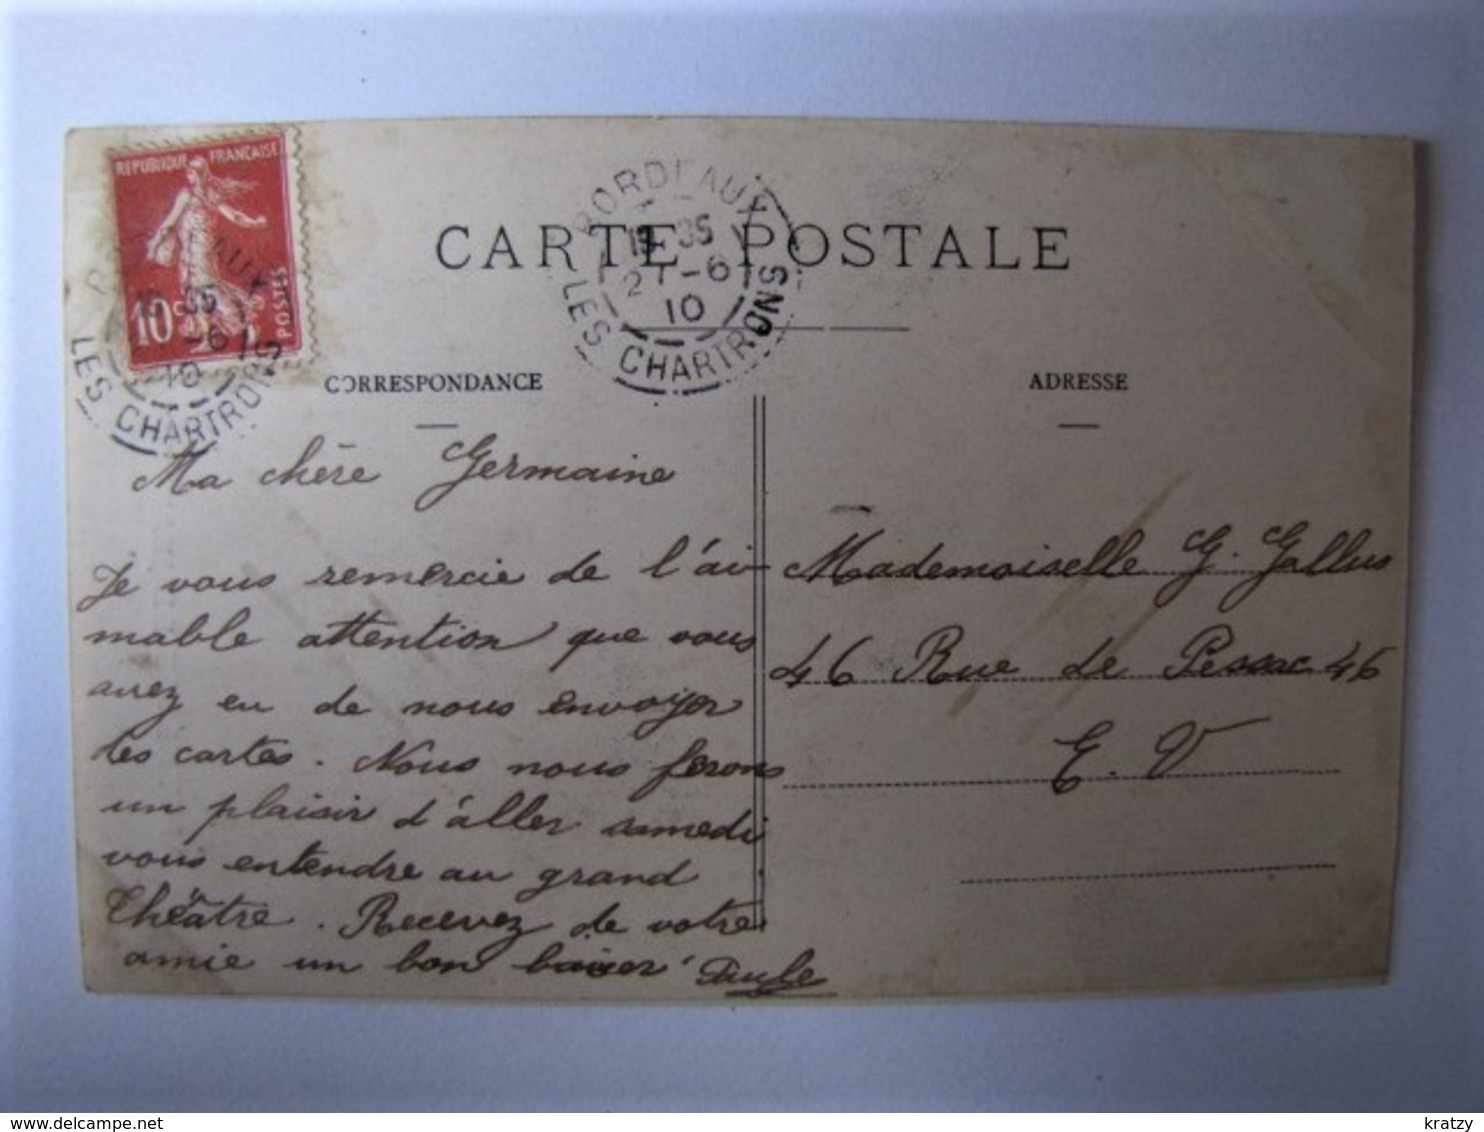 REPUBLIQUE FRANÇAISE
10 c
POSTES
BORDEAUX
19 35
27-6
10
LES CHARTRONS
CARTE POSTALE
CORRESPONDANCE
ADRESSE
Ma chère Germaine
Je vous remercie de l'ai-
mable attention que vous
avez eu de nous envoyer
les cartes. Nous nous ferons
un plaisir d'âller samedi
vous entendre au grand
Théâtre. Recevez de votre
amie un bon baiser Paule
Mademoiselle G. Gallus
46 Rue de Pessac 46
E. V
delcampe.net
kratzy